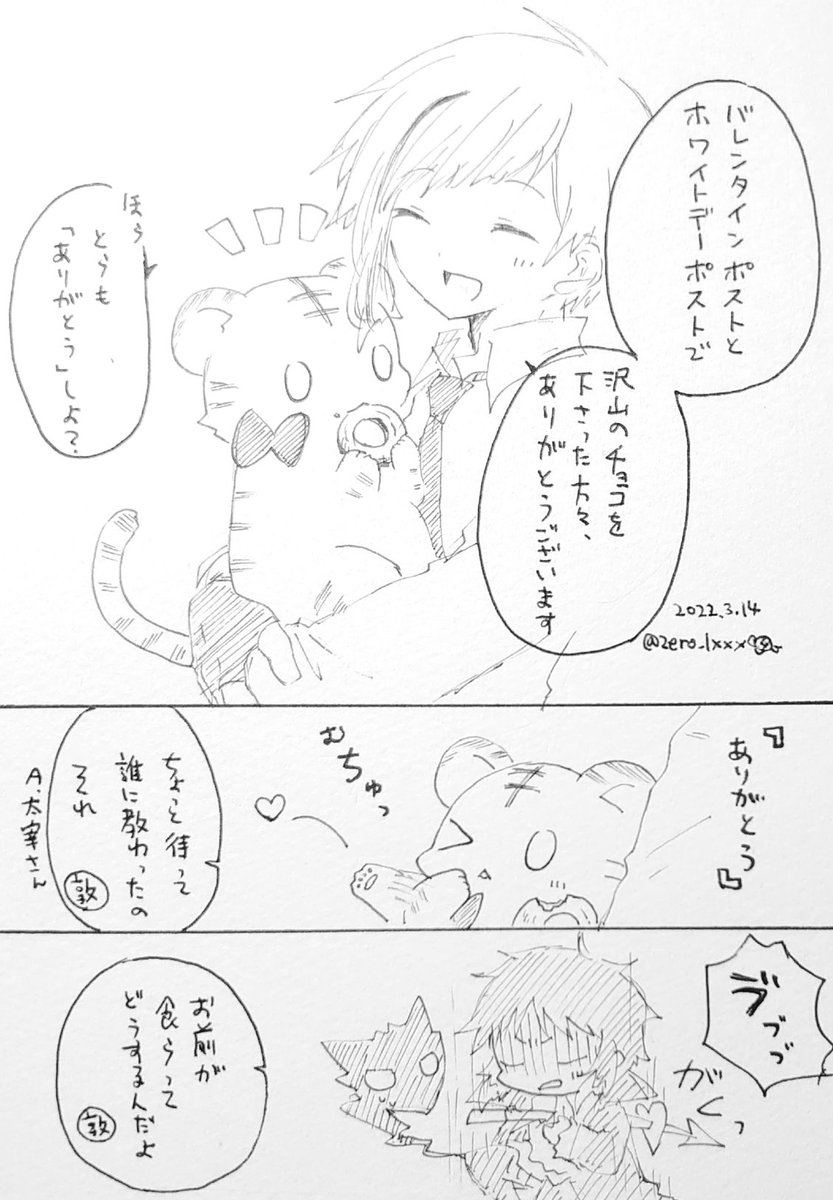 バレンタインポストと
ホワイトデーポストで
沢山のチョコを
下さった方々、
ありがとうございます
ほら
とらも
「ありがとう」しよ?
2022.3.14
@zero_1xxx
『ありがとう』
むちゅっ
ちょっと待って
誰に教わったの
それ
敦
A.太宰さん
ヴッッッ
がくっ
お前が
食らって
どうするんだよ
敦